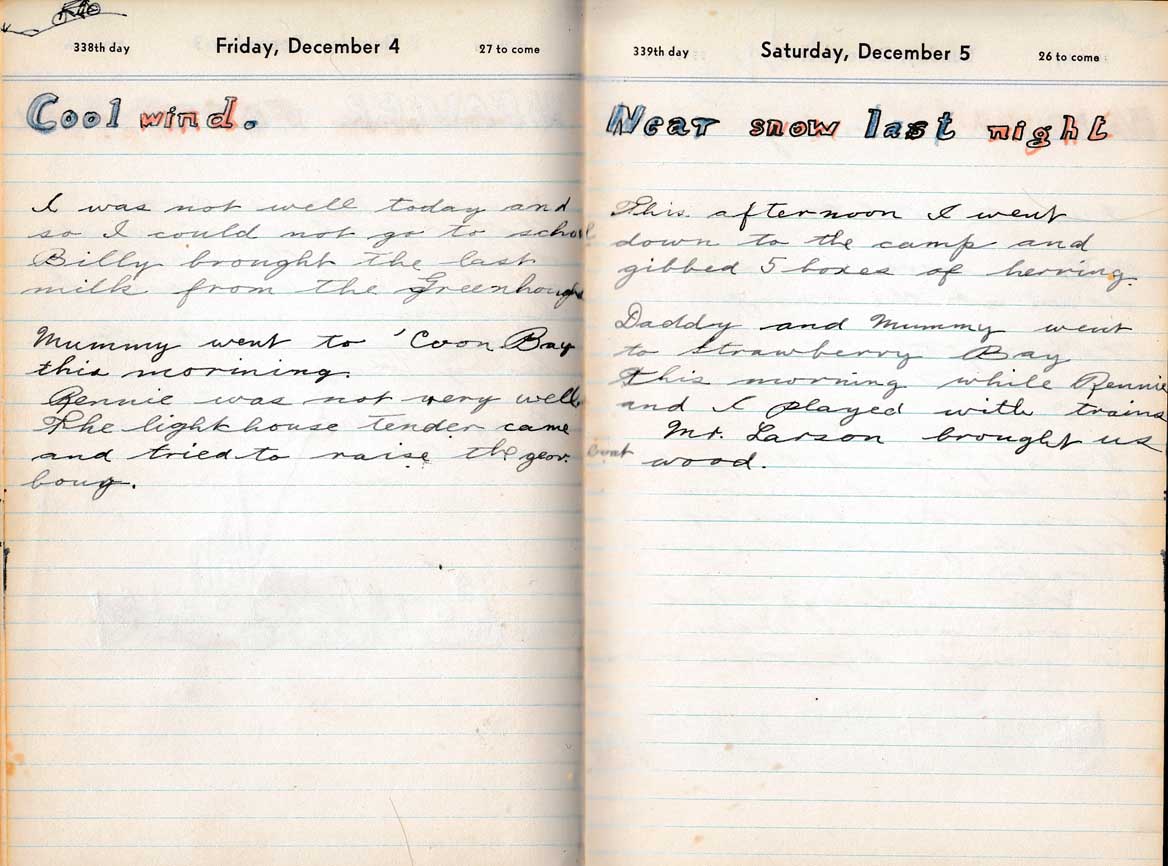 338th day Friday, December 4 27 to come
Cool wind.
I was not well today and
so I could not go to school
Billy brought the last
milk from the Greenhough
Mummy went to 'Coon Bay
this morining.
Rennie was not very well.
The lighthouse tender came
and tried to raise the geor.
bouy.
339th day Saturday, December 5 26 to come
Near snow last night
This afternoon I went
down to the camp and
gibbed 5 boxes of herring.
Daddy and Mummy went
to Strawberry Bay
this morning while Rennie
and I played with trains
Mr. Larson brought us
wood.